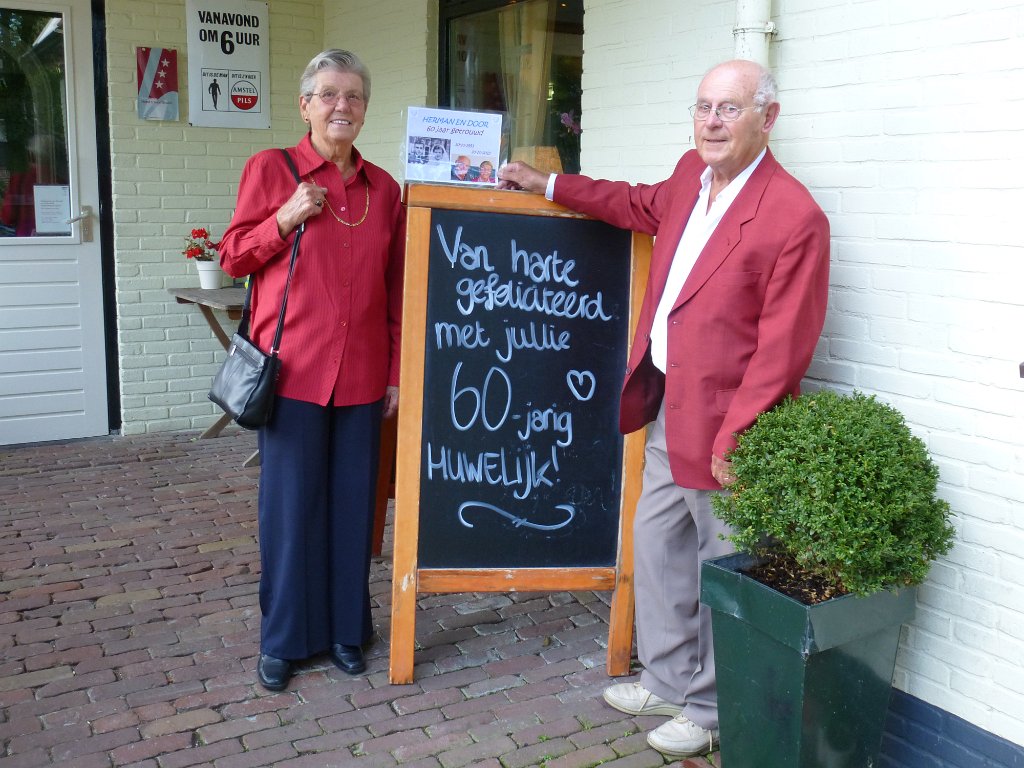 VANAVOND
OM 6 UUR
DIT IS DE MAN
DIT IS ZIJN
AMSTEL
PILS
HERMAN EN DOOR
60 jaar getrouwd
Van harte
gefeliciteerd
met jullie
60-jarig
HUWELIJK!